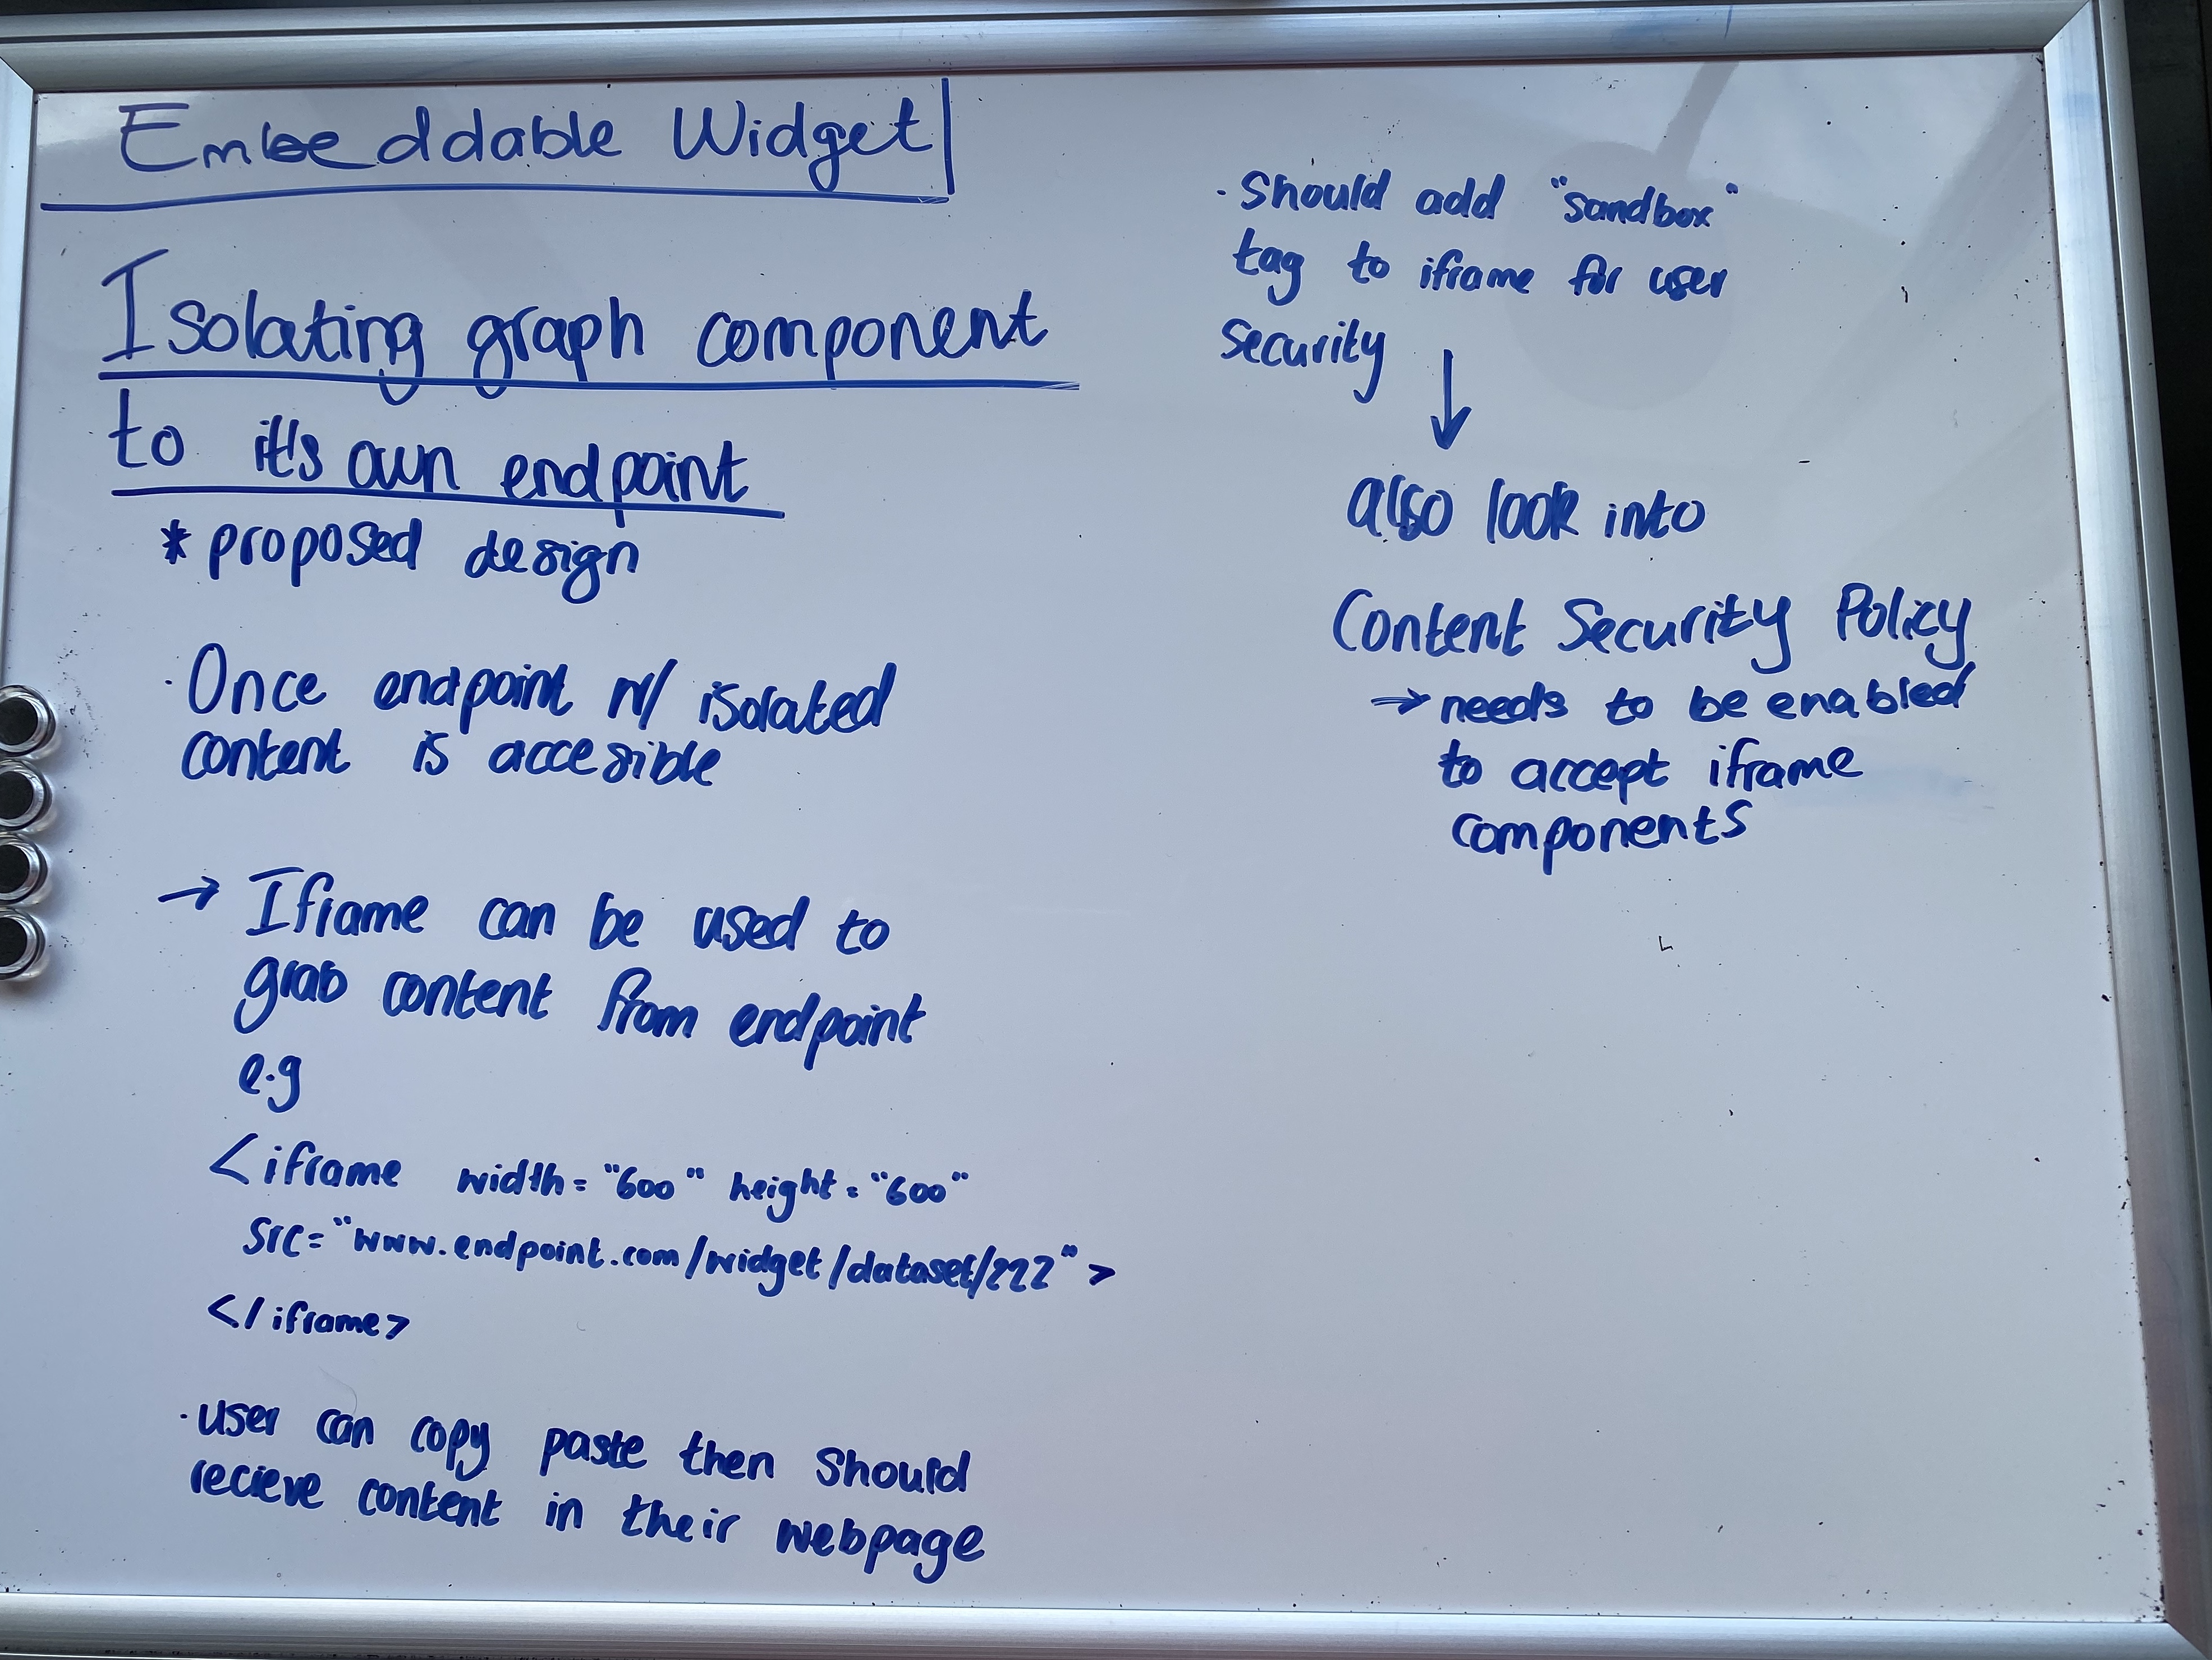 Embeddable Widget
Isolating graph component
to it's own endpoint
* proposed design
· Once endpoint w/ isolated
content is accesible
→ Iframe can be used to
grab content from endpoint
e.g
<iframe width="600" height="600"
src="www.endpoint.com/widget/dataset/222">
</iframe>
· user can copy paste then should
recieve content in their webpage
· Should add "sandbox"
tag to iframe for user
security
↓
also look into
Content Security Policy
→ needs to be enabled
to accept iframe
components